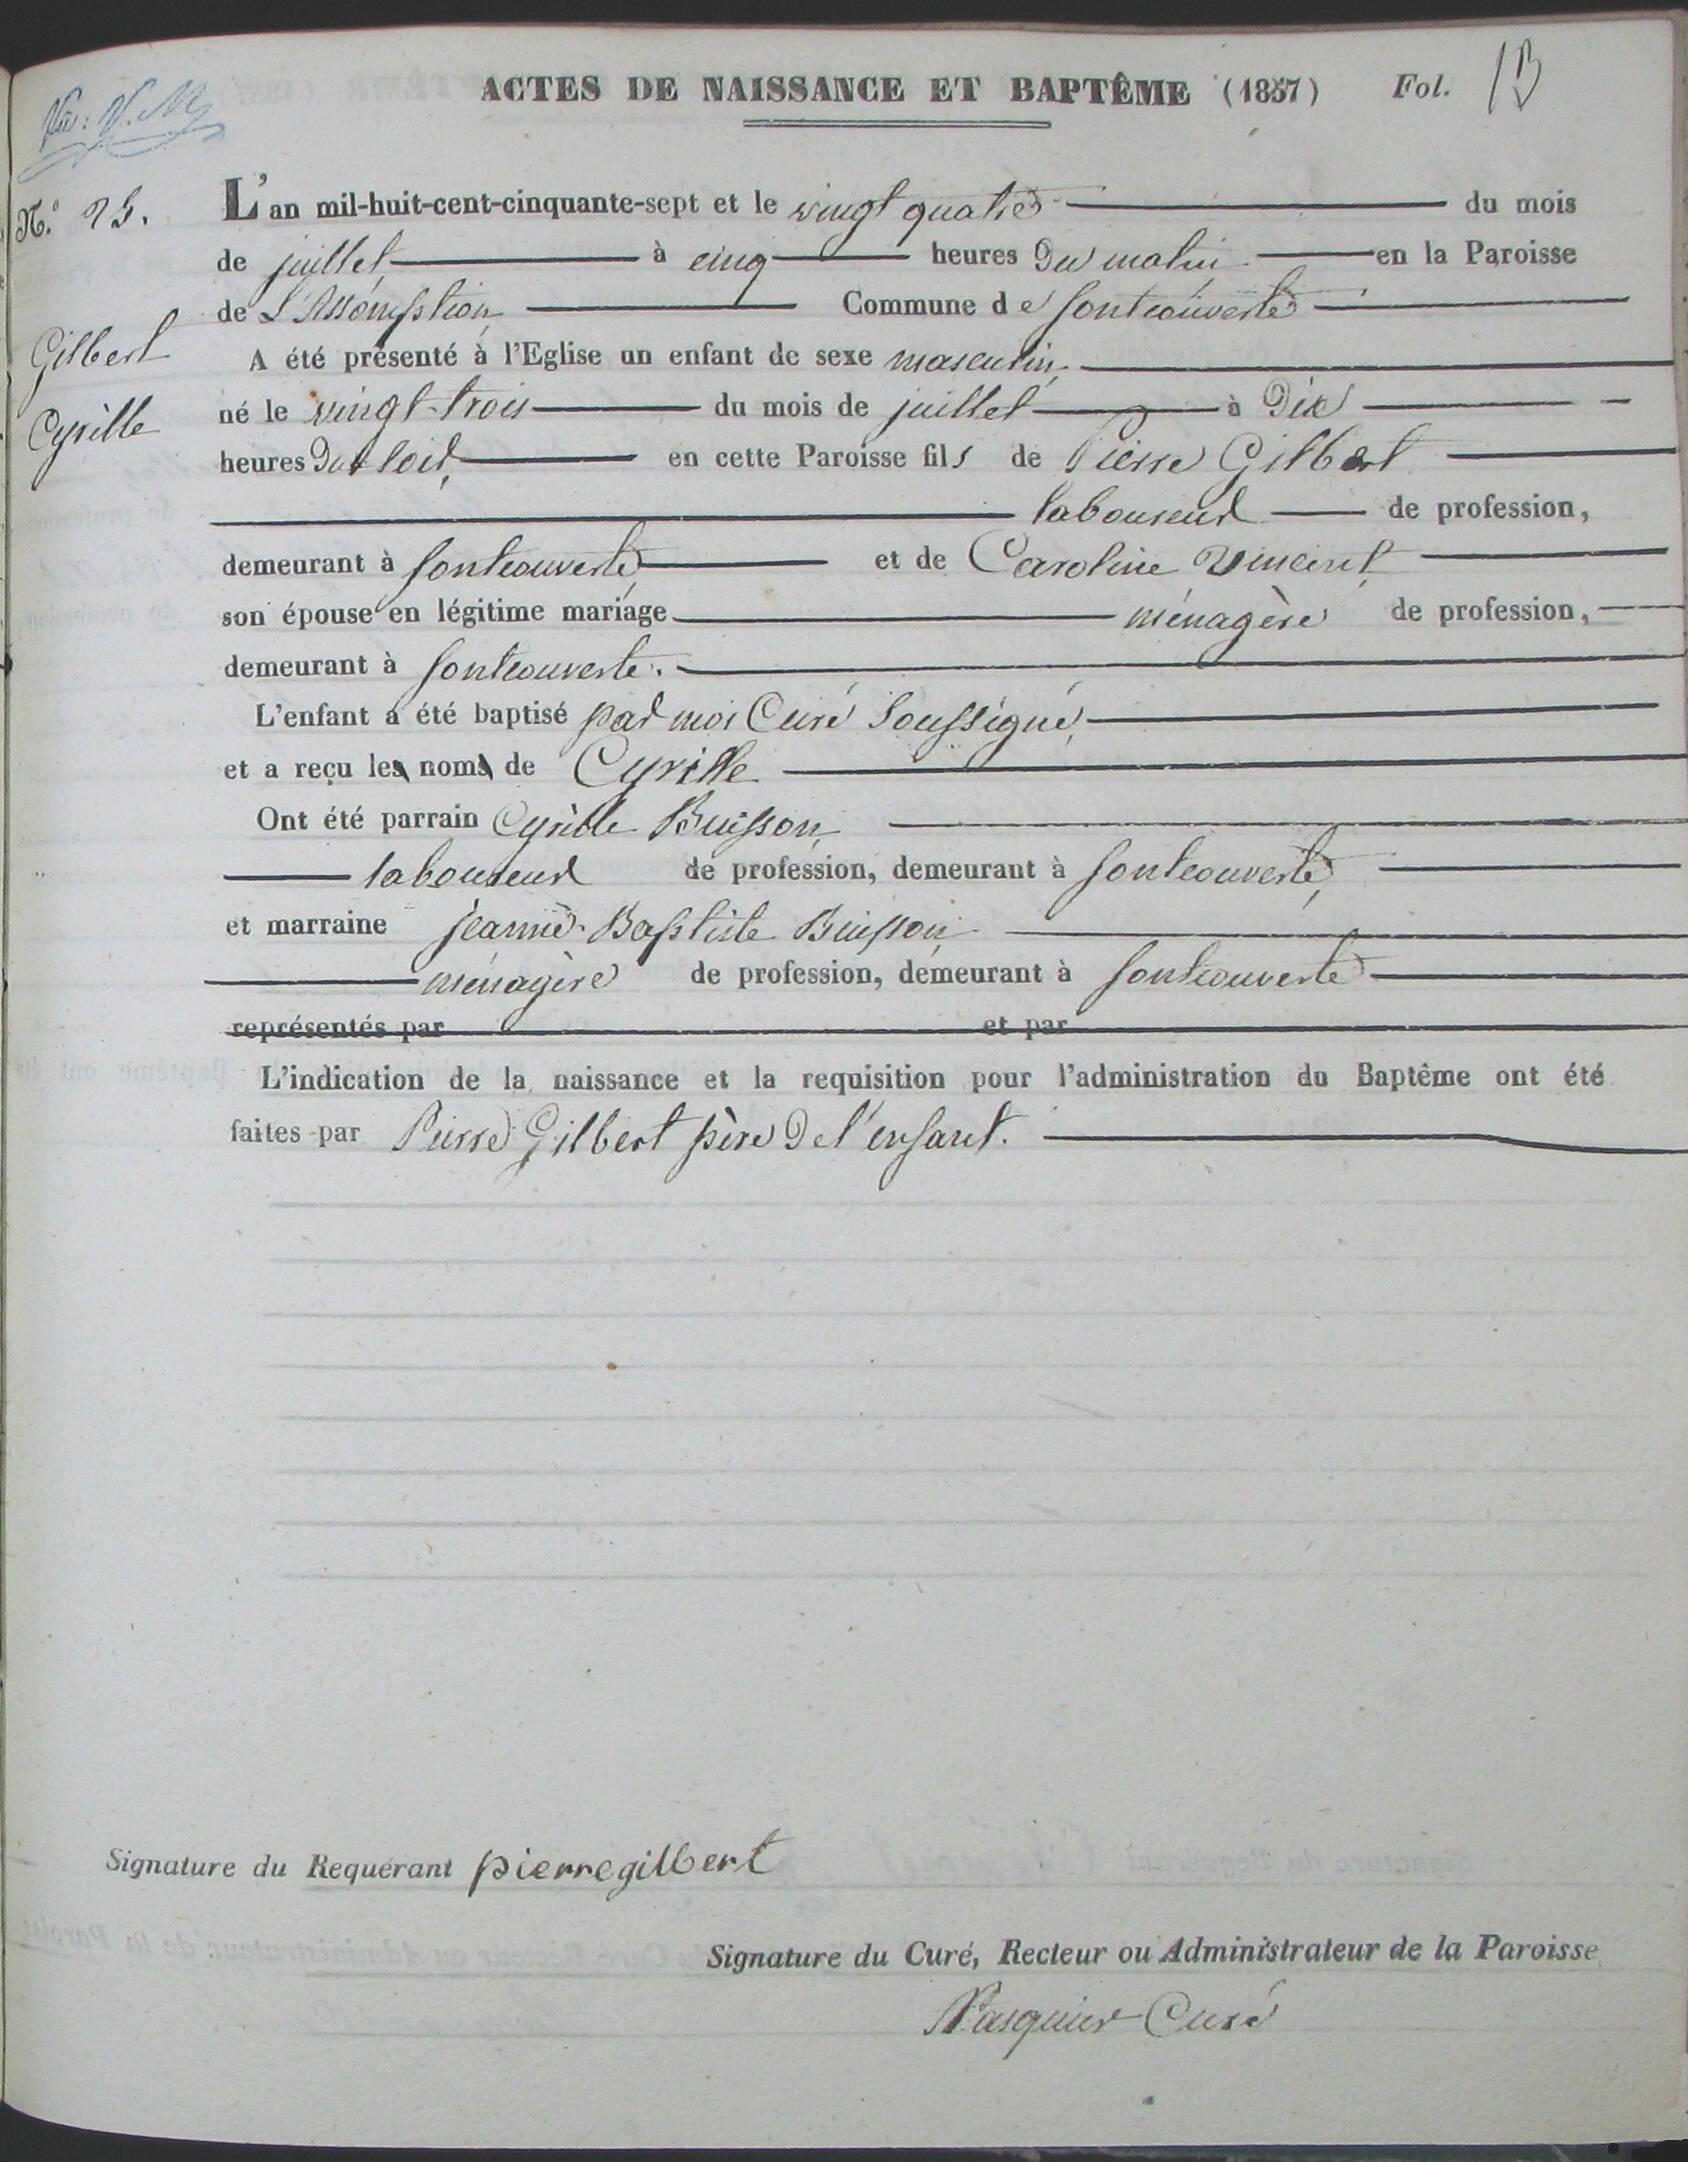 ACTES DE NAISSANCE ET BAPTÊME (1857) Fol. 13
N.º 25. L'an mil-huit-cent-cinquante-sept et le vingt quatre du mois
de juillet à cinq heures du matin en la Paroisse
de L'Assomption Commune de fontcouverte
Gilbert
A été présenté à l'Eglise un enfant de sexe masculin
Cyrille
né le vingt-trois du mois de juillet à Dix
heures du soir, en cette Paroisse fils de Pierre Gilbert
laboureur de profession,
demeurant à fontcouverte et de Caroline Vincent
son épouse en légitime mariage ménagère de profession,
demeurant à fontcouverte.
L'enfant a été baptisé par moi Curé Soussigné,
et a reçu les noms de Cyrille
Ont été parrain Cyrille Buisson,
laboureur de profession, demeurant à fontcouverte,
et marraine jeanne-Baptiste Buisson
ménagère de profession, demeurant à fontcouverte
représentés par et par
L'indication de la naissance et la requisition pour l'administration du Baptême ont été
faites par Pierre Gilbert père de l'enfant.
Signature du Requérant pierre gilbert
Signature du Curé, Recteur ou Administrateur de la Paroisse
Pasquier Curé